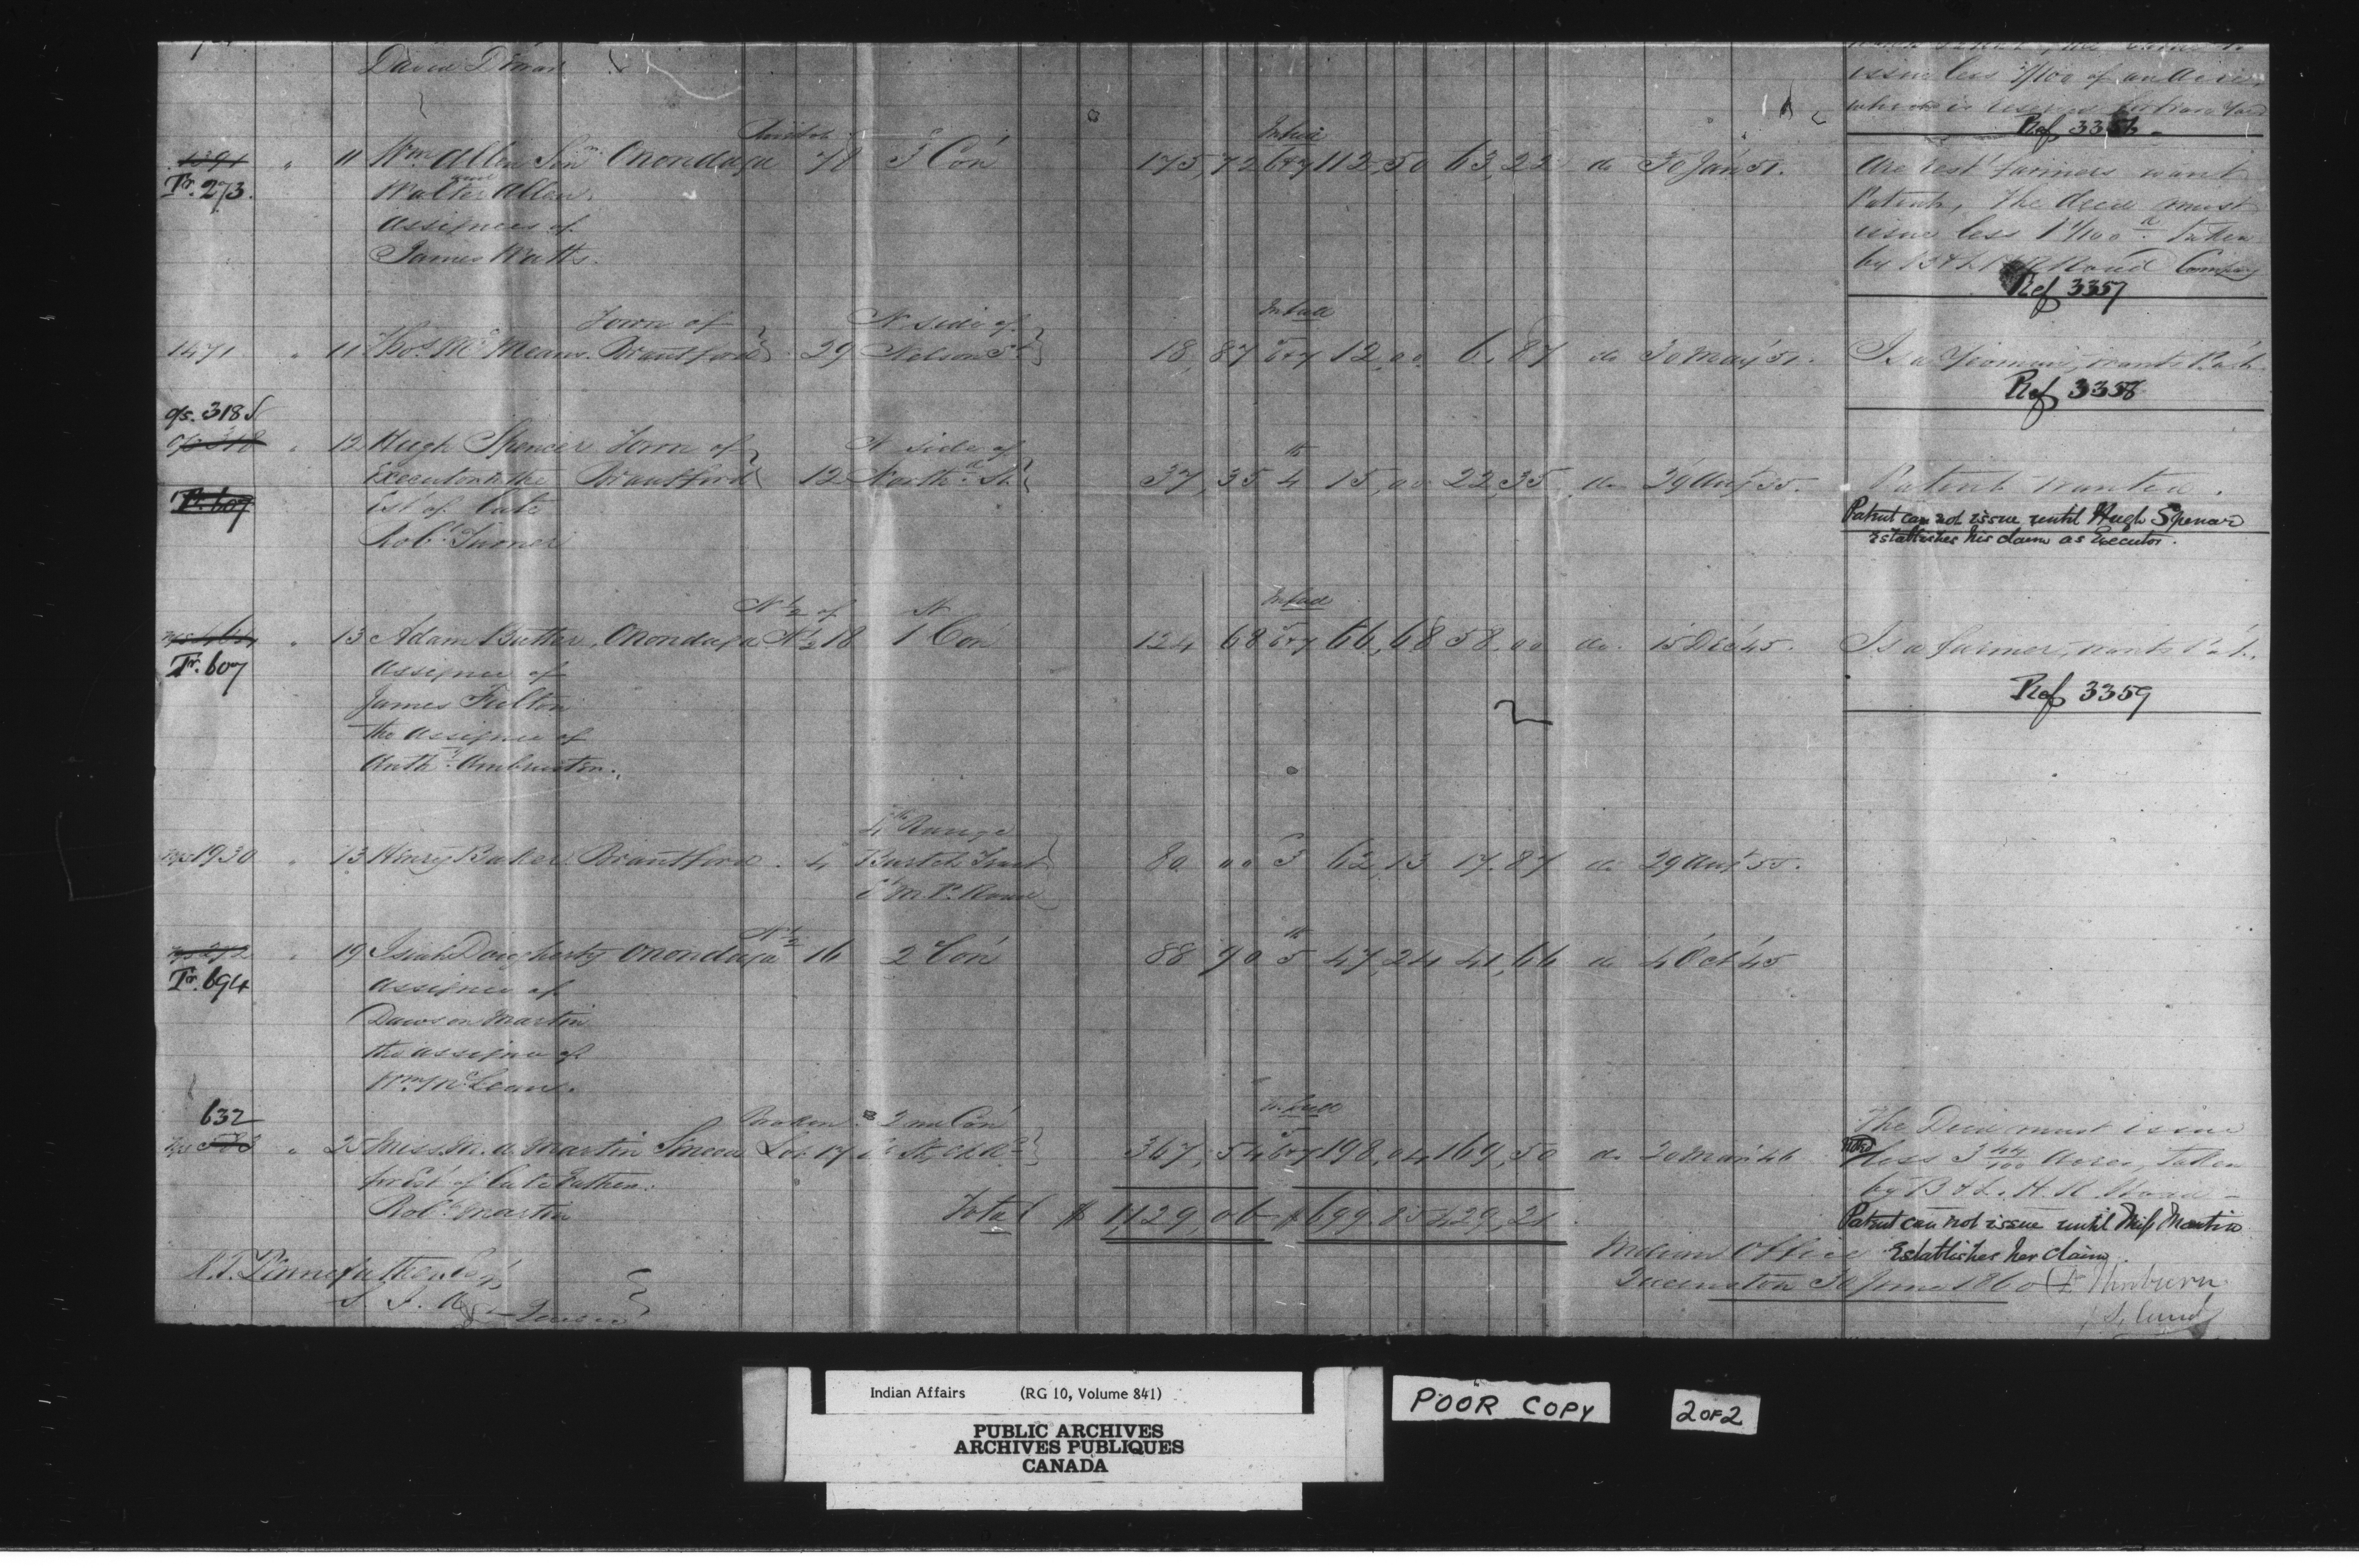 David
issue less 3/100 of an acre
Ref 3356
1391 " 11 Wm Allen Senr Onondaga 3 Con 175,72 6&7 112,50 63,22 do 30 Jan 51. are rest farmers want
Tr. 273. and Walter Allen Patent, The deed must
assignees of issue less 1 /100 taken
James Watts. by B & L R Road Company
Ref 3357
Town of N side of In full
1471 " 11 Thos McMeans Brantford 29 Nelson St 18,87 6&7 12,00 6,87 do 30 May 51. Is a Yeoman, wants Pat.
Ref 3358
o/s. 318
o/s 318 " 12 Hugh Spencer Town of N side of th
Executor to the Brantford 12 North St 37,35 4 15,00 22,35 do 29 Aug 55. Patent wanted.
Tr. 607 Est of late Patent can not issue until Hugh Spencer
Robt Turner Establishes his claim as Executor.
N 1/2 of N In full
" 13 Adam Butter Onondaga N 1/2 18 1 Con 124 68 6&7 66,68 58,00 do 15 Dec 45. Is a farmer, wants Pat.
Tr. 607 assignee of
James Fulton Ref 3359
the assignee of
Anthy
4th Range
1930 " 13 Henry Baker Brantford 4 Burtch Tract 80 00 3 62,13 17,87 do 29 Aug 55.
N 1/2
292 " 19 Isiah Daugherty Onondaga 16 2 Con 88 90 5th 47,24 41,66 do 4 Oct 45
Tr. 694 assignee of
Dawson Martin
the assignee of
Wm McLean.
632 Broken 2nd Con In full The Deed must issue
" 25 Miss M. A. Martin Seneca Lot 17 367,54 6&7 198,04 169,50 do 20 Mar 46 less 3 44/100 Acres, taken
for Est of late Father. by B & L. H. R. Road
Robt Martin Total $ 1,129,06 $ 699.85 429,21 Patent can not issue until Miss Martin
Establishes her claim.
R.T. Pennefather Esq Indian Office
S. I. A. Quebec Tuscarora 30 June 1860 D Thorburn
Indian Affairs (RG 10, Volume 841)
PUBLIC ARCHIVES
ARCHIVES PUBLIQUES
CANADA
POOR COPY
2 OF 2